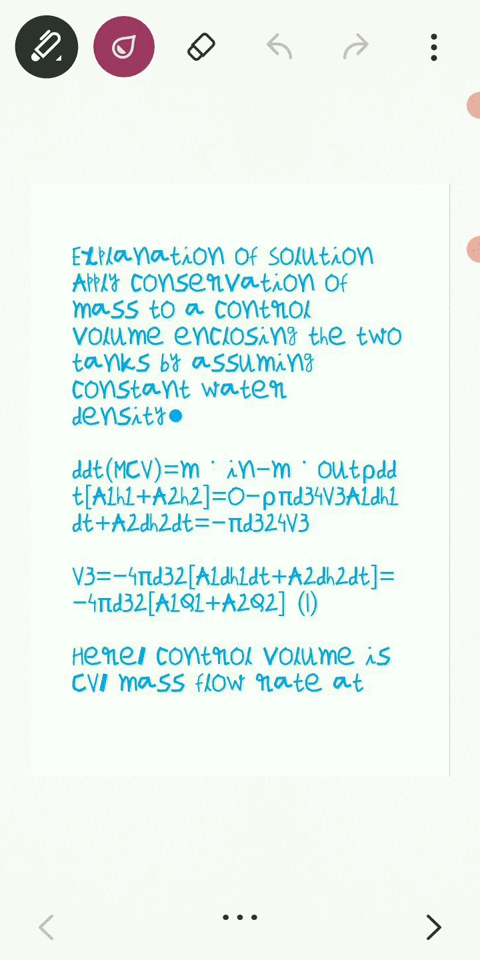 Explanation of solution
Apply conservation of
mass to a control
volume enclosing the two
tanks by assuming
constant water
density●
ddt(MCV)=m ˙ in-m ˙ outρdd
t[A1h1+A2h2]=0-ρπd34V3A1dh1
dt+A2dh2dt=-πd324V3
V3=-4πd32[A1dh1dt+A2dh2dt]=
-4πd32[A1Q1+A2Q2] (1)
Here/ control volume is
CV/ mass flow rate at